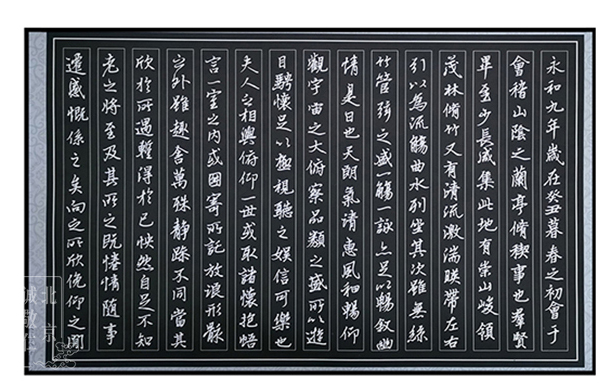 永和九年歲在癸丑暮春之初會于
會稽山陰之蘭亭脩稧事也羣賢
畢至少長咸集此地有崇山峻領
茂林脩竹又有清流激湍暎帶左右
引以為流觴曲水列坐其次雖無絲
竹管弦之盛一觴一詠亦足以暢敘幽
情是日也天朗氣清惠風和暢仰
觀宇宙之大俯察品類之盛所以遊
目騁懷足以極視聽之娛信可樂也
夫人之相與俯仰一世或取諸懷抱悟
言一室之內或因寄所託放浪形骸
之外雖趣舍萬殊靜躁不同當其
欣於所遇暫得於己怏然自足不知
老之將至及其所之既惓情隨事
遷感慨係之矣向之所欣俛仰之閒
北京